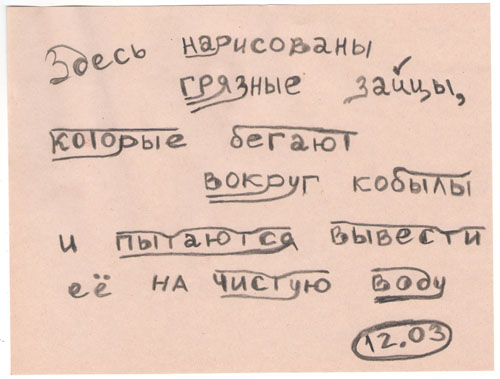 Здесь нарисованы
грязные зайцы,
которые бегают
вокруг кобылы
и пытаются вывести
её на чистую воду
12.03